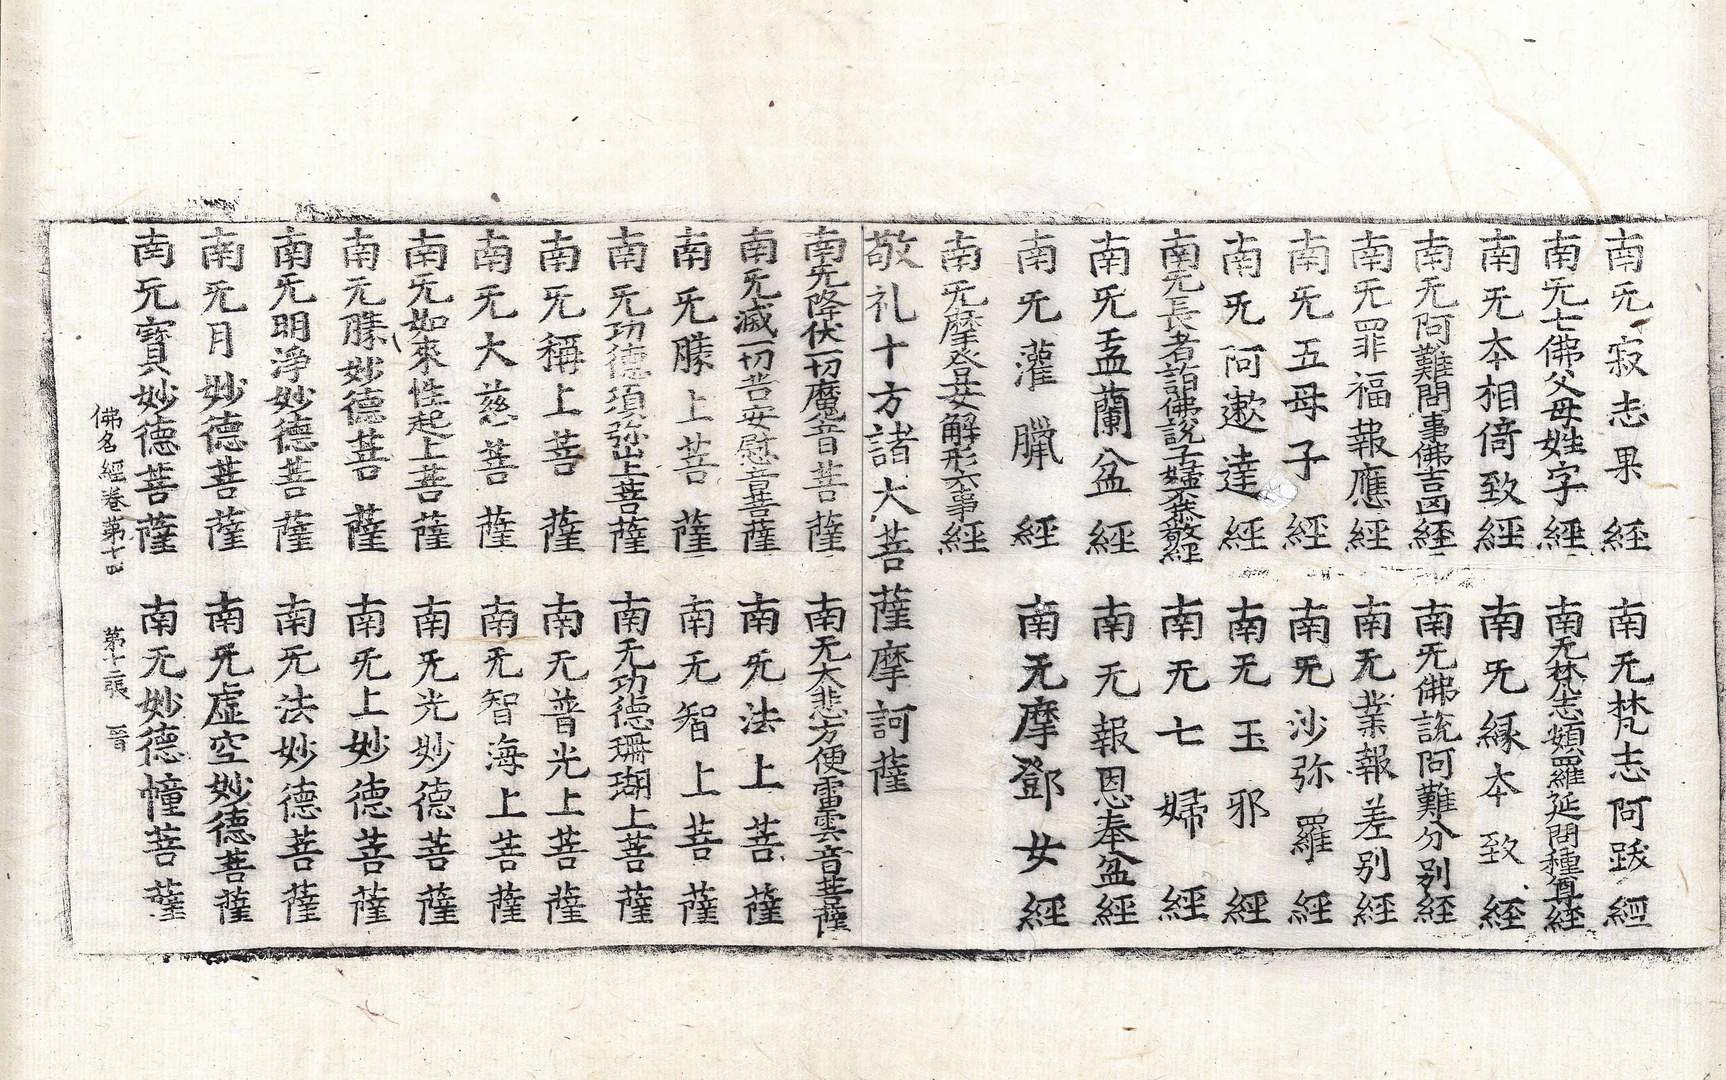 南无寂志果經 南无梵志阿跋經
南无七佛父母姓字經 南无梵志頞羅延問種尊經
南无本相倚致經 南无緣本致經
南无阿難問事佛吉凶經 南无佛說阿難分別經
南无罪福報應經 南无業報差別經
南无五母子經 南无沙弥羅經
南无阿遬達經 南无玉耶經
南无長者詣佛說子婦不恭敬經 南无七婦經
南无盂蘭盆經 南无報恩奉盆經
南无灌臘經 南无摩鄧女經
南无摩登女解形六事經
敬礼十方諸大菩薩摩訶薩
南无降伏一切魔音菩薩 南无大悲方便雷雲音菩薩
南无滅一切苦安慰音菩薩 南无法上菩薩
南无勝上菩薩 南无智上菩薩
南无功德須弥山上菩薩 南无功德珊瑚上菩薩
南无稱上菩薩 南无普光上菩薩
南无大慈菩薩 南无智海上菩薩
南无如來性起上菩薩 南无光妙德菩薩
南无勝妙德菩薩 南无上妙德菩薩
南无明淨妙德菩薩 南无法妙德菩薩
南无月妙德菩薩 南无虛空妙德菩薩
南无寶妙德菩薩 南无妙德幢菩薩
佛名經卷第十四 第十二張